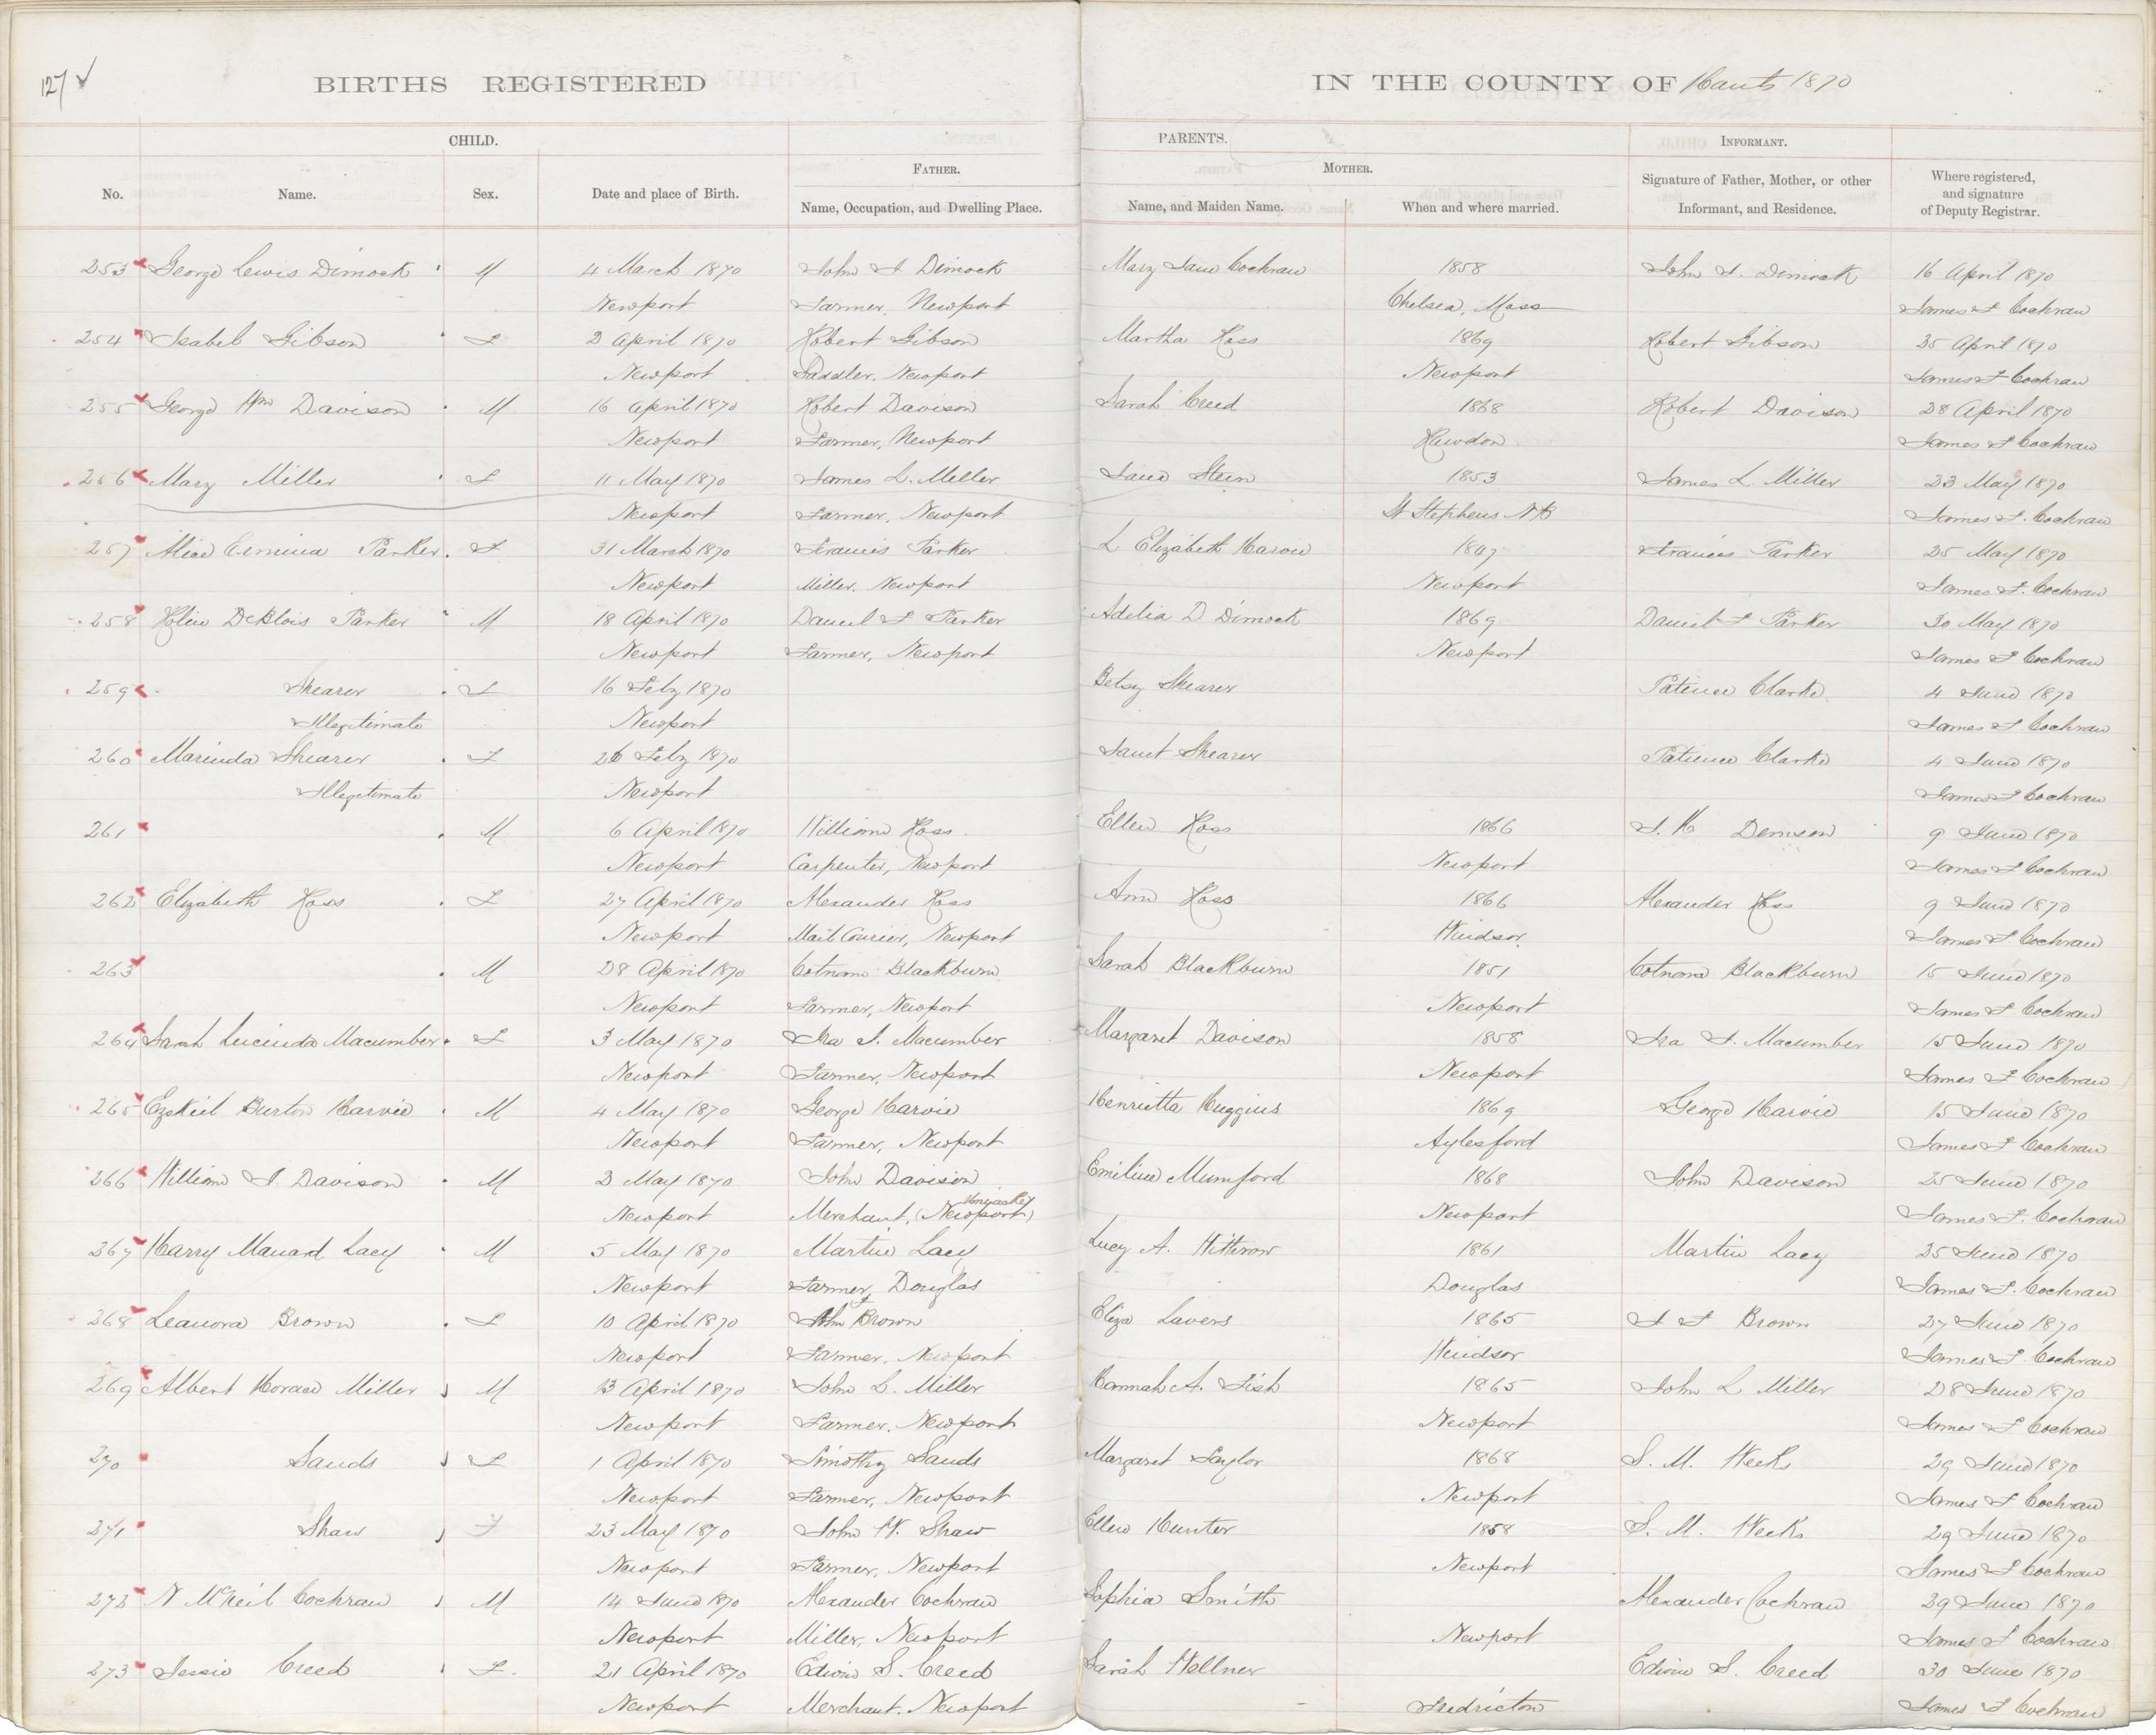 127 ✓
BIRTHS REGISTERED IN THE COUNTY OF Hants 1870
CHILD. PARENTS. INFORMANT.
FATHER. MOTHER.
No. Name. Sex. Date and place of Birth. Name, Occupation, and Dwelling Place. Name, and Maiden Name. When and where married. Signature of Father, Mother, or other Informant, and Residence. Where registered, and signature of Deputy Registrar.
253 George Lewis Dimock M 4 March 1870 John I Dimock Mary Jane Cochran 1858 John I. Dimock 16 April 1870
Newport Farmer, Newport Chelsea, Mass James F Cochran
254 Isabel Gibson F 2 April 1870 Robert Gibson Martha Ross 1869 Robert Gibson 25 April 1870
Newport Saddler, Newport Newport James F Cochran
255 George Wm Davison M 16 April 1870 Robert Davison Sarah Creed 1868 Robert Davison 28 April 1870
Newport Farmer, Newport Rawdon James F Cochran
256 Mary Miller F 11 May 1870 James L. Miller Jane Stein 1853 James L. Miller 23 May 1870
Newport Farmer, Newport St Stephens NB James F. Cochran
257 Alice Ermina Parker F 31 March 1870 Francis Parker L Elizabeth Harvie 1847 Francis Parker 25 May 1870
Newport Miller. Newport Newport James F. Cochran
258 DeBlois Parker M 18 April 1870 Daniel F Parker Adelia D Dimock 1869 Daniel F Parker 30 May 1870
Newport Farmer, Newport Newport James F Cochran
259 Shearer F 16 Feby 1870 Betsy Shearer Patience Clarke 4 June 1870
Illegitimate Newport James F Cochran
260 Marinda Shearer F 26 Feby 1870 Janet Shearer Patience Clarke 4 June 1870
Illegitimate Newport James F Cochran
261 M 6 April 1870 William Ross Ellen Ross 1866 Denison 9 June 1870
Newport Carpenter, Newport Newport James F Cochran
262 Elizabeth Ross F 27 April 1870 Alexander Ross Ann Ross 1866 Alexander Ross 9 June 1870
Newport Mail Courier, Newport Windsor James F. Cochran
263 M 28 April 1870 Cotnam Blackburn Sarah Blackburn 1851 Cotnam Blackburn 15 June 1870
Newport Farmer, Newport Newport James F Cochran
264 Sarah Lucinda Macumber F 3 May 1870 Ira J. Macumber Margaret Davison 1858 Ira J. Macumber 15 June 1870
Newport Farmer, Newport Newport James F Cochran
265 Ezekiel Burton Harvie M 4 May 1870 George Harvie Henrietta Huggins 1869 George Harvie 15 June 1870
Newport Farmer, Newport Aylesford James F Cochran
266 William I. Davison M 2 May 1870 John Davison Emiline Mumford 1868 John Davison 25 June 1870
Newport Merchant, (Newport) Newport James F. Cochran
267 Harry Manard Lacy M 5 May 1870 Martin Lacy Lucy A. Withrow 1861 Martin Lacy 25 June 1870
Newport Farmer, Douglas Douglas James F. Cochran
268 Leanora Brown F 10 April 1870 John F Brown Eliza Lavers 1865 J F Brown 27 June 1870
Newport Farmer, Newport Windsor James F. Cochran
269 Albert Horace Miller M 13 April 1870 John L. Miller Hannah A. Fish 1865 John L Miller 28 June 1870
Newport Farmer, Newport Newport James F Cochran
270 Sands F 1 April 1870 Timothy Sands Margaret Taylor 1868 S. M. Weeks 29 June 1870
Newport Farmer, Newport Newport James F Cochran
271 Shaw F 23 May 1870 John W. Shaw Ellen Hunter 1858 S. M. Weeks 29 June 1870
Newport Farmer, Newport Newport James F Cochran
272 N McNeil Cochran M 14 June 1870 Alexander Cochran Sophia Smith Alexander Cochran 29 June 1870
Newport Miller, Newport Newport James F Cochran
273 Jessie Creed F. 21 April 1870 Edwin S. Creed Sarah Wellner Edwin S. Creed 30 June 1870
Newport Merchant. Newport Fredricton James F Cochran